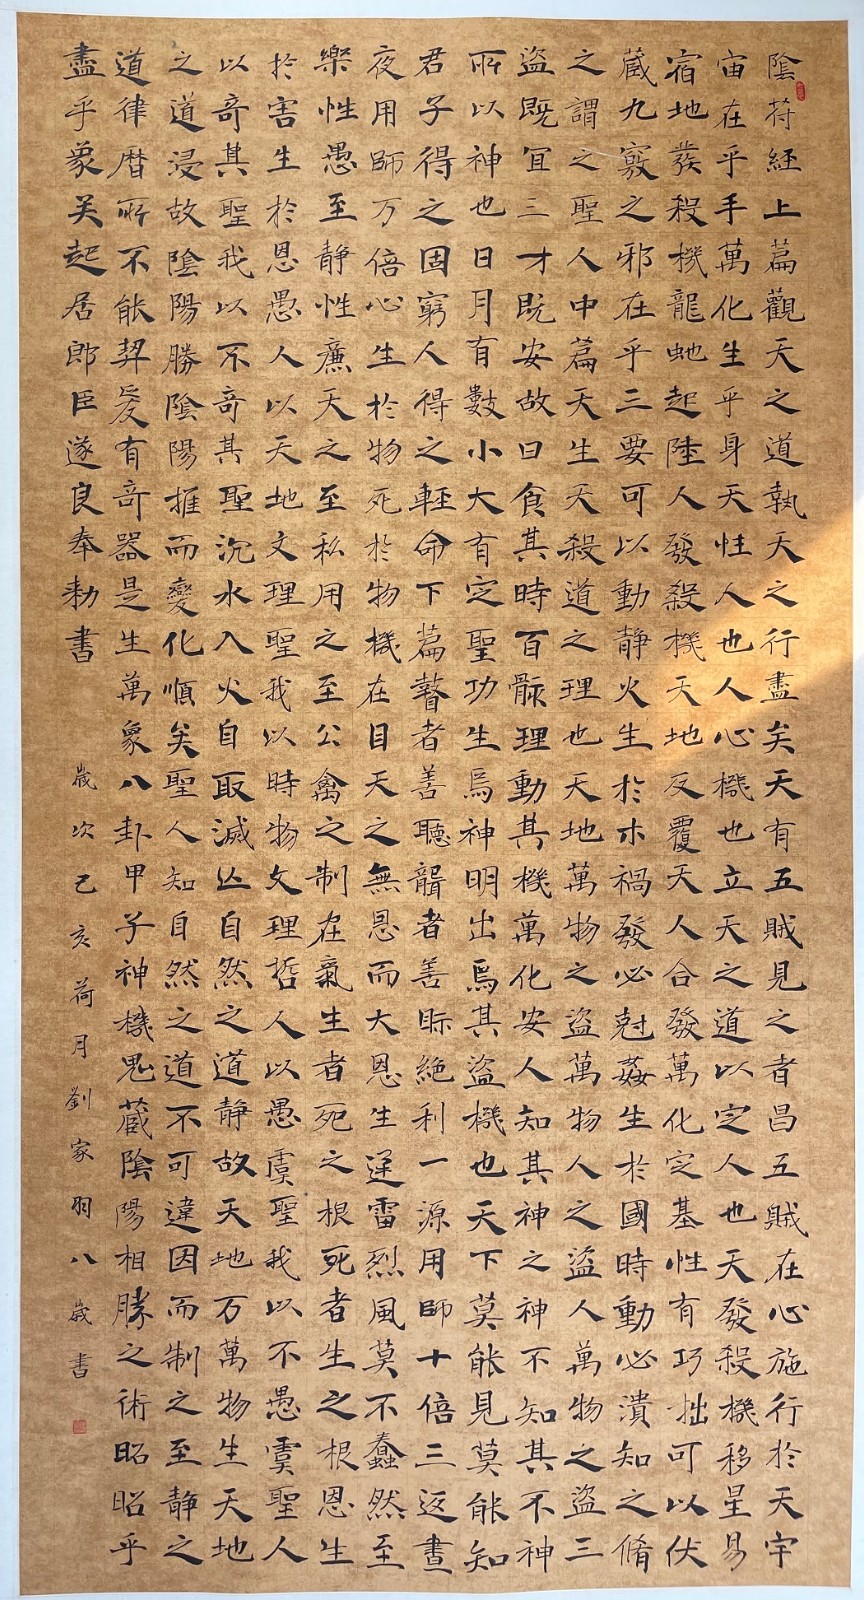 陰符經上篇觀天之道執天之行盡矣天有五賊見之者昌五賊在心施行於天宇
宙在乎手萬化生乎身天性人也人心機也立天之道以定人也天發殺機移星易
宿地發殺機龍虵起陸人發殺機天地反覆天人合發萬化定基性有巧拙可以伏
藏九竅之邪在乎三要可以動靜火生於木禍發必尅姦生於國時動必潰知之脩
之謂之聖人中篇天生天殺道之理也天地萬物之盜萬物人之盜人萬物之盜三
盜既宜三才既安故曰食其時百骸理動其機萬化安人知其神之神不知其不神
所以神也日月有數小大有定聖功生焉神明出焉其盜機也天下莫能見莫能知
君子得之固窮人得之輕命下篇瞽者善聽聾者善眎絕利一源用師十倍三返晝
夜用師万倍心生於物死於物機在目天之無恩而大恩生迅雷烈風莫不蠢然至
樂性愚至靜性廉天之至私用之至公禽之制在氣生者死之根死者生之根恩生
於害生於恩愚人以天地文理聖我以時物文理哲人以愚虞聖我以不愚虞聖人
以奇其聖我以不奇其聖沉水入火自取滅亡自然之道靜故天地万萬物生天地
之道浸故陰陽勝陰陽推而變化順矣聖人知自然之道不可違因而制之至靜之
道律曆所不能契爰有奇器是生萬象八卦甲子神機鬼藏陰陽相勝之術昭昭乎
盡乎象矣起居郎臣遂良奉勅書
歲次己亥荷月劉家羽八歲書